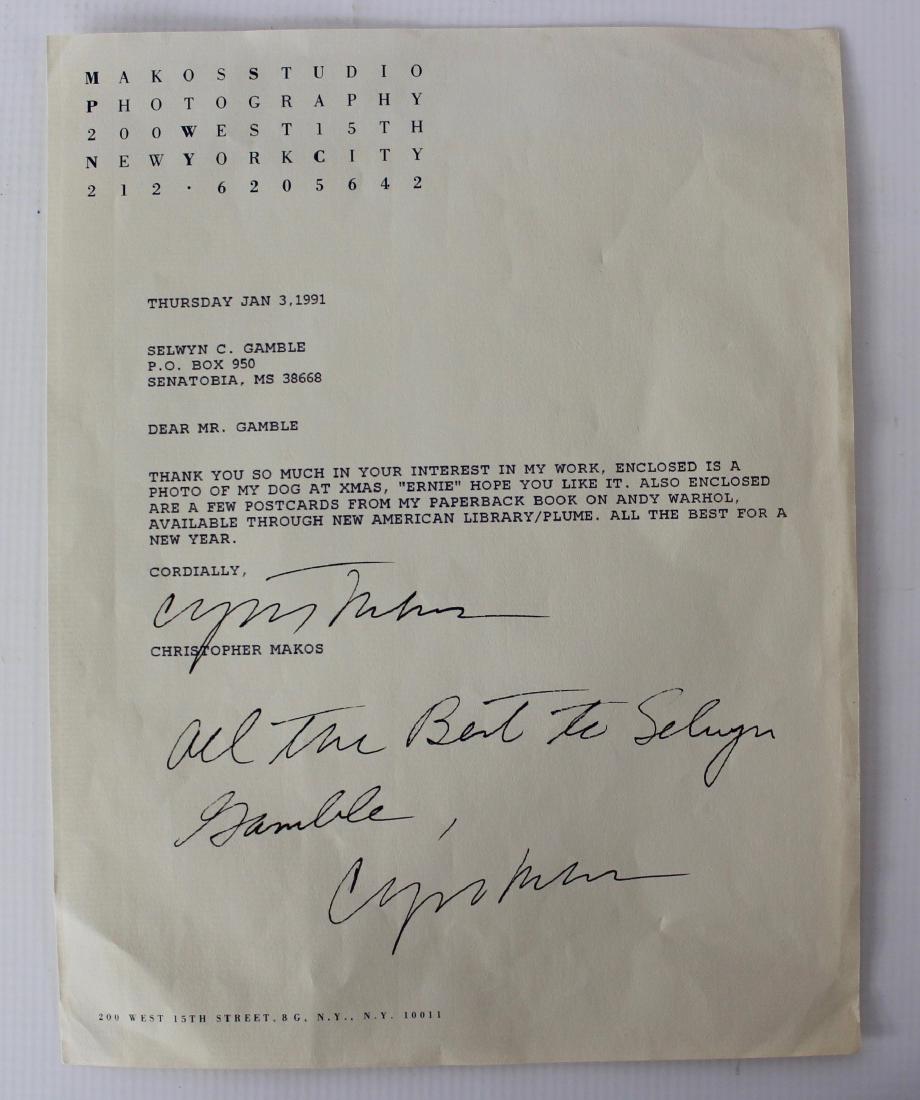 MAKOSSTUDIO
PHOTOGRAPHY
200WEST15TH
NEWYORKCITY
212·6205642
THURSDAY JAN 3,1991
SELWYN C. GAMBLE
P.O. BOX 950
SENATOBIA, MS 38668
DEAR MR. GAMBLE
THANK YOU SO MUCH IN YOUR INTEREST IN MY WORK, ENCLOSED IS A
PHOTO OF MY DOG AT XMAS, "ERNIE" HOPE YOU LIKE IT. ALSO ENCLOSED
ARE A FEW POSTCARDS FROM MY PAPERBACK BOOK ON ANDY WARHOL,
AVAILABLE THROUGH NEW AMERICAN LIBRARY/PLUME. ALL THE BEST FOR A
NEW YEAR.
CORDIALLY,
Makos
CHRISTOPHER MAKOS
All the Best to Selwyn
Gamble,
Makos
200 WEST 15TH STREET, 8G, N.Y., N.Y. 10011